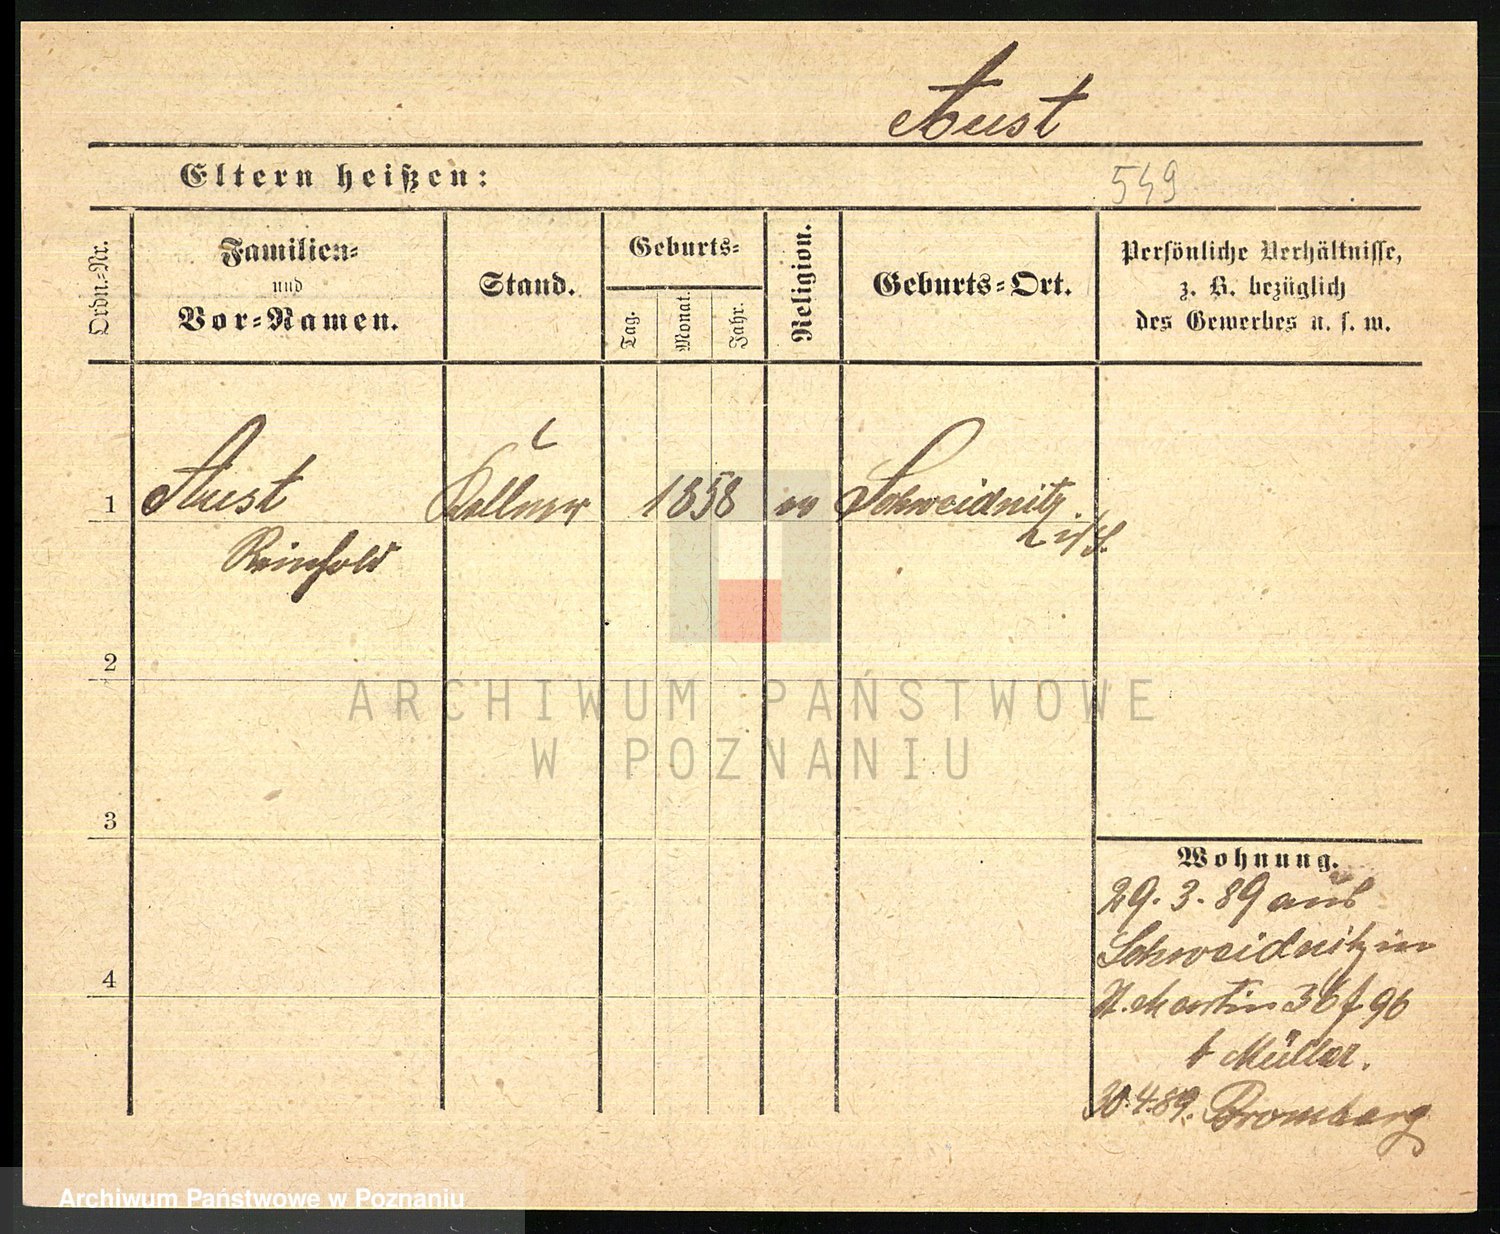 Aust
Eltern heißen:
549
Ordn.-Nr.
Familien-
und
Vor-Namen.
Stand.
Geburts-
Tag.
Monat.
Jahr.
Religion.
Geburts-Ort.
Persönliche Verhältnisse,
z. B. bezüglich
des Gewerbes u. s. w.
1
Aust
Reinhold
Kellner
1858
ev
Schweidnitz
2
3
4
Wohnung.
29.3.89 aus
Schweidnitz in
St. Martin 36 f 96
b Müller.
30.4.89. Bromberg
ARCHIWUM PAŃSTWOWE
W POZNANIU
Archiwum Państwowe w Poznaniu